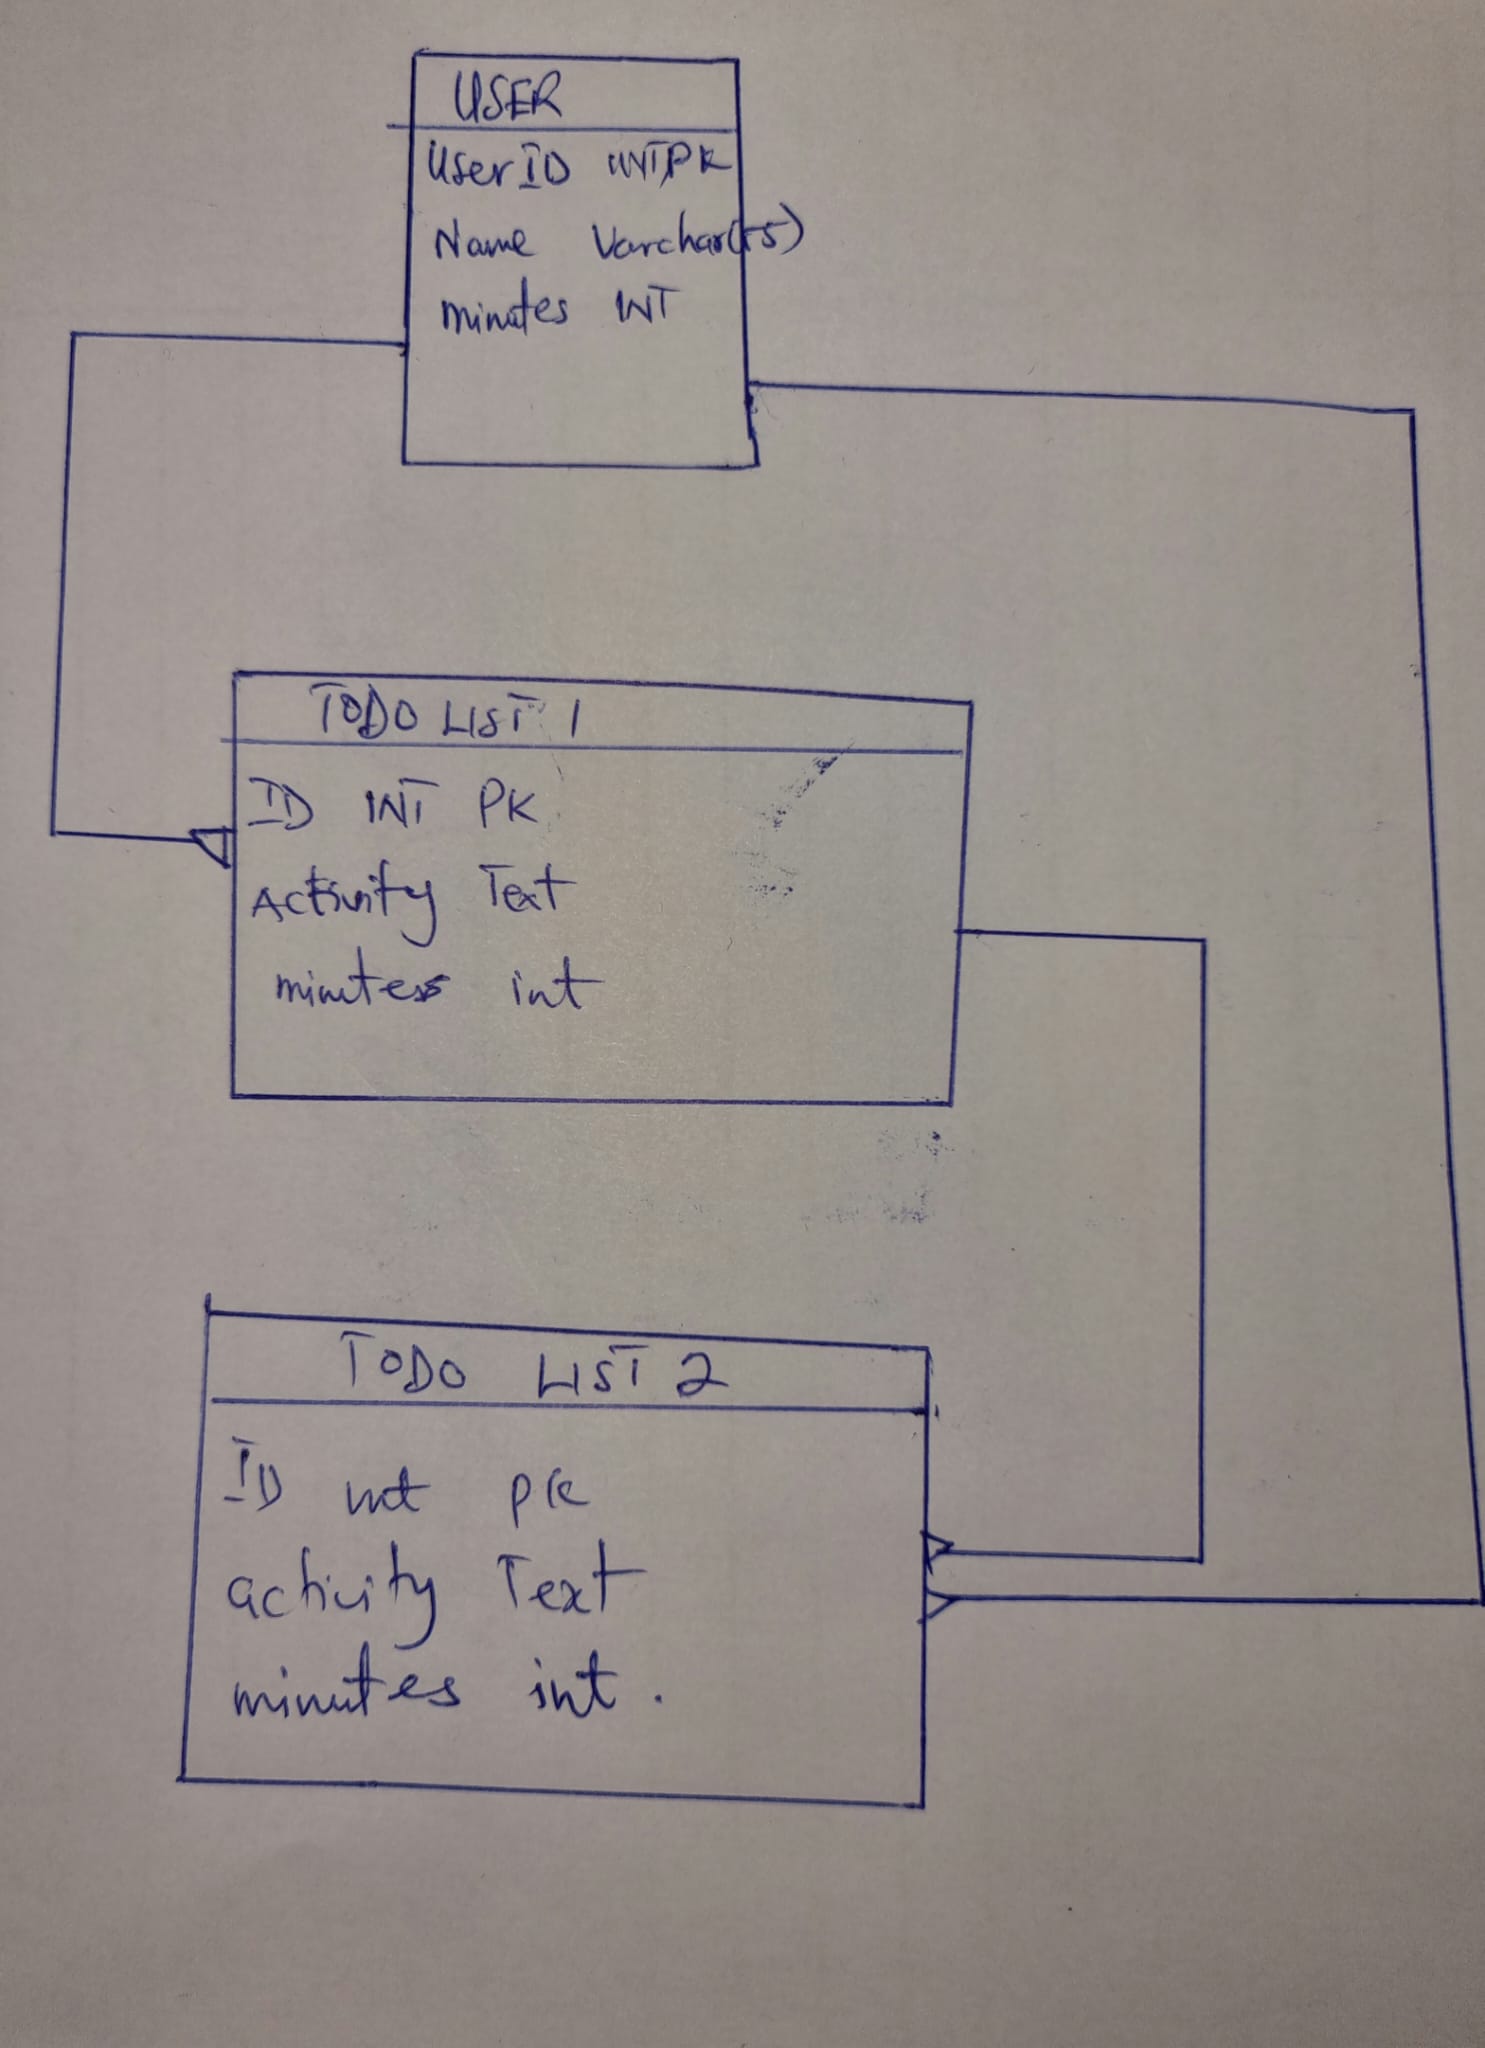 USER
UserID INT PK
Name Varchar(55)
minutes INT
TODO LIST 1
ID INT PK
Activity Text
minutes int
TODO LIST 2
ID int pk
activity Text
minutes int.